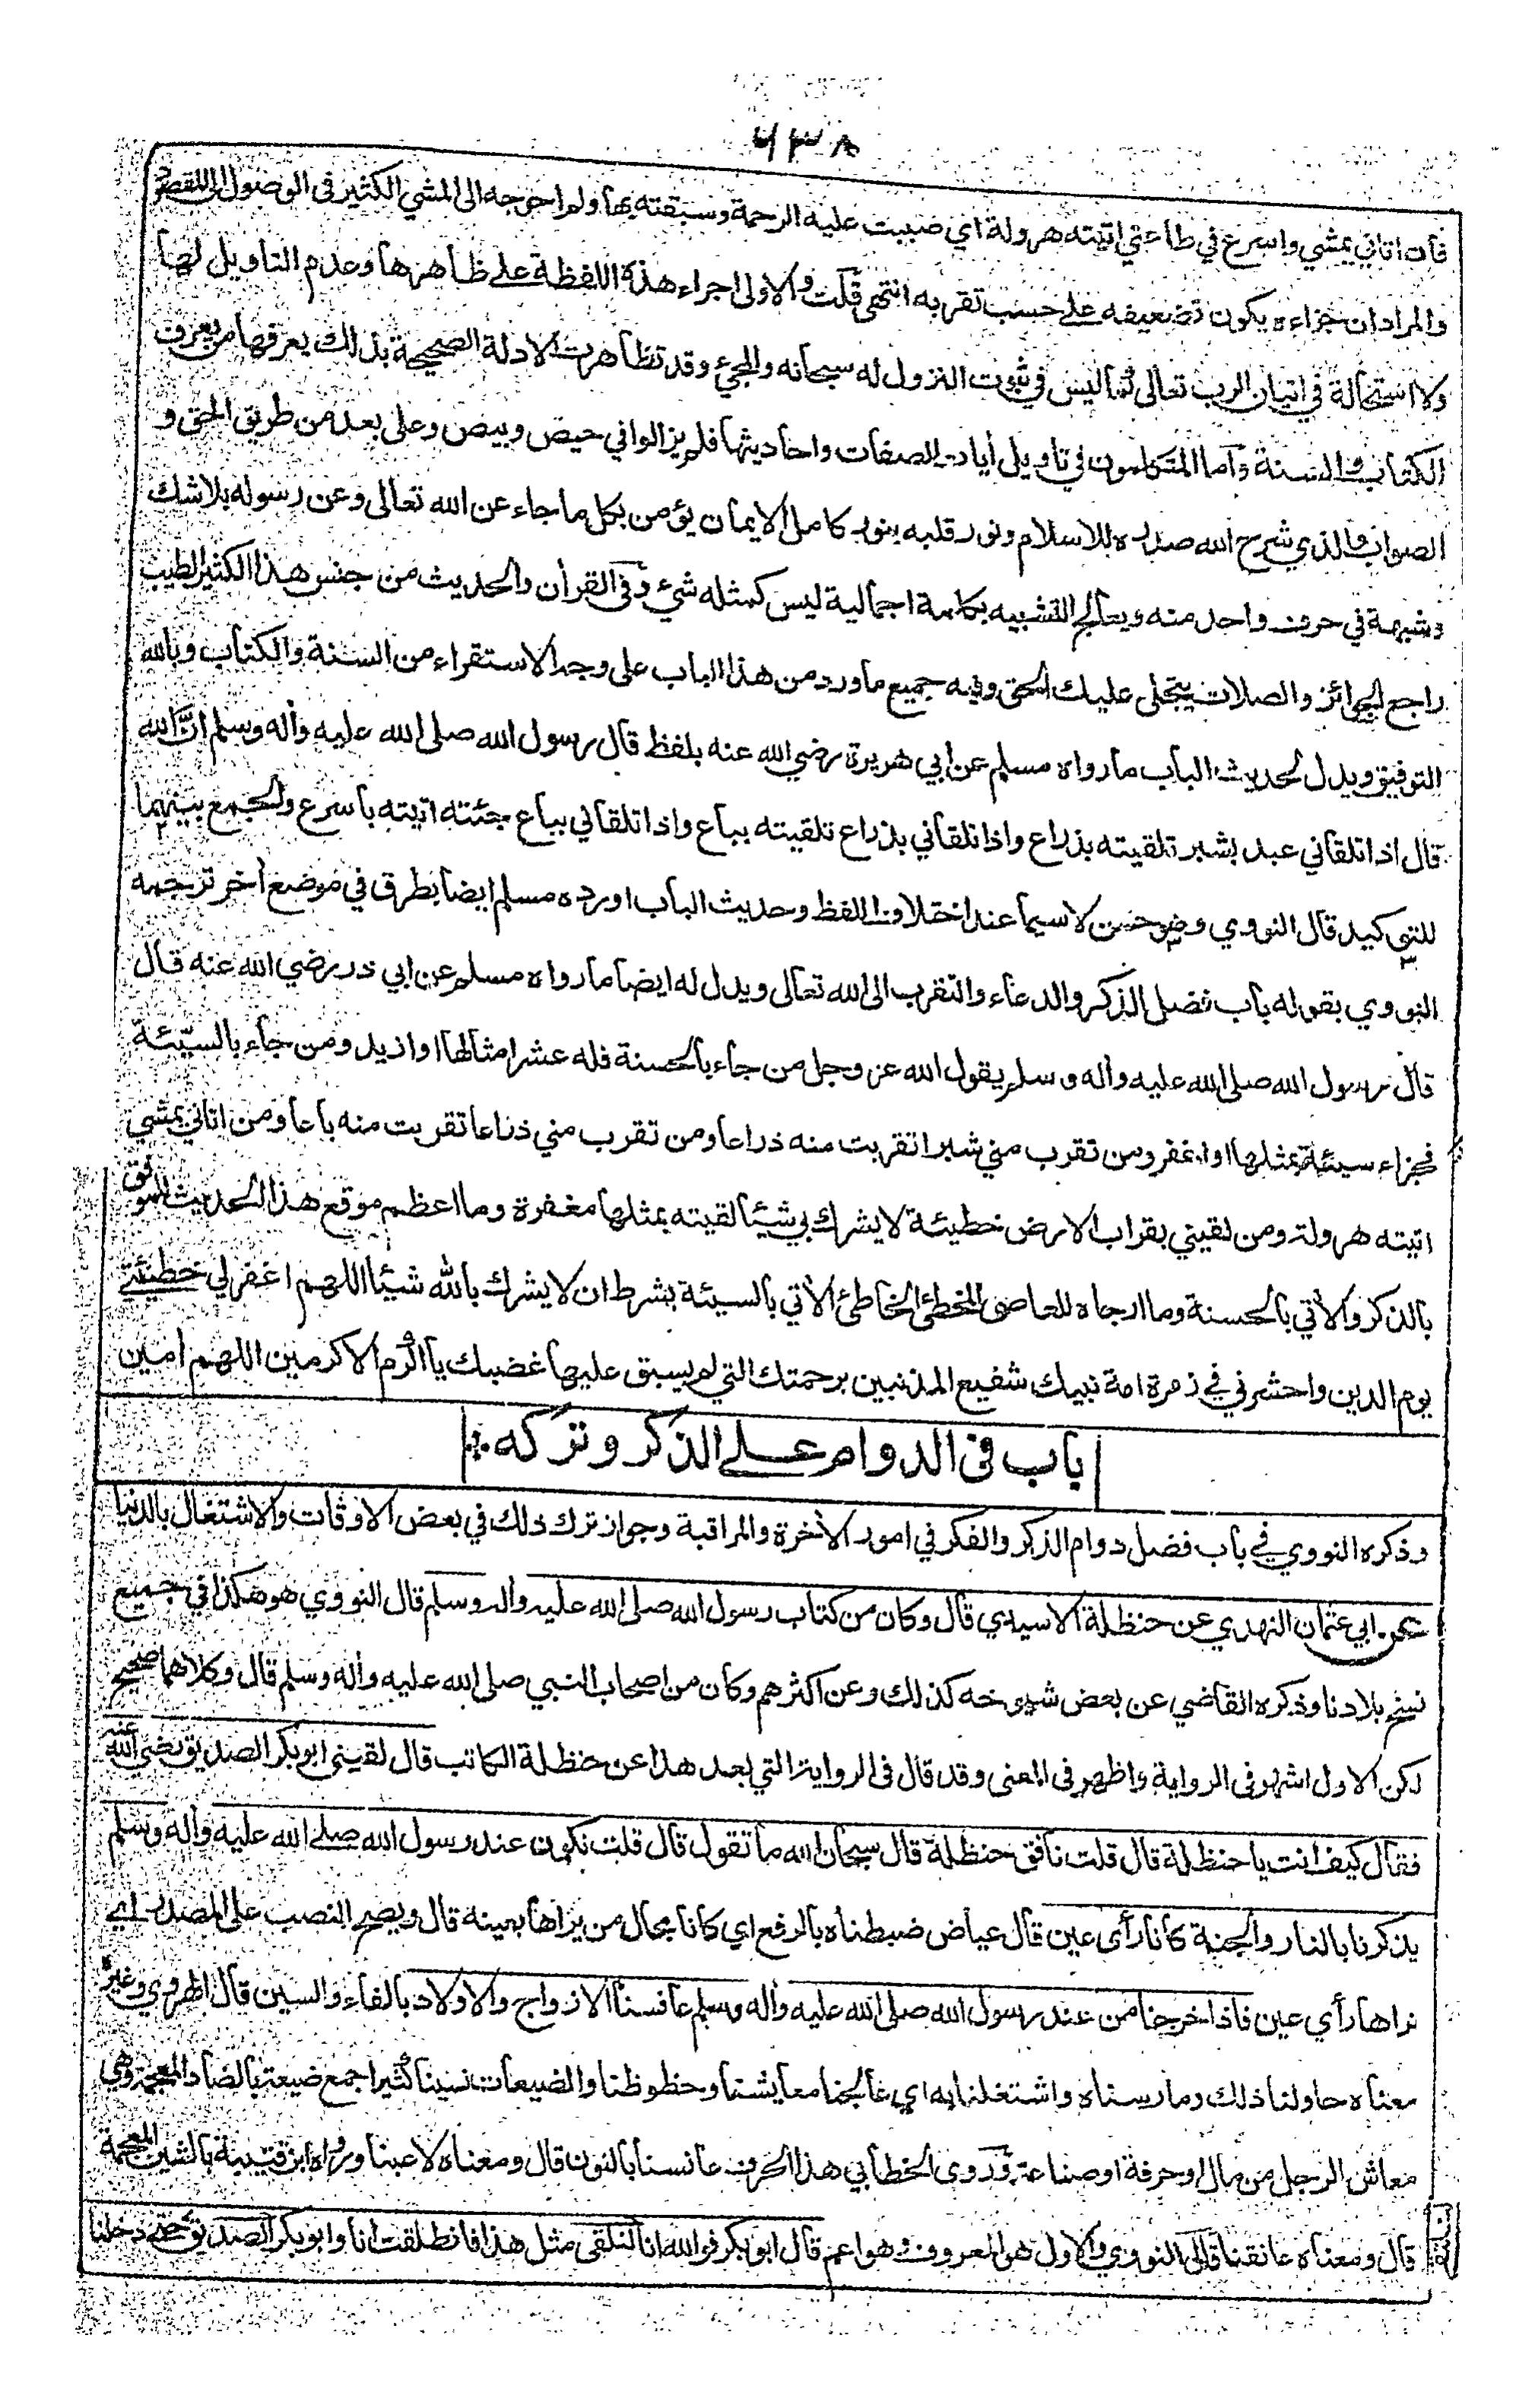 ٦٣٨
فان اتاني يمشي واسرع في طاعتي اتيته هرولة اي صببت عليه الرحمة وسبقته بها ولم احوجه الى المشي الكثير في الوصول الى المقصود
والمراد ان جزاءه يكون تضعيفه على حسب تقربه انتهى قلت والاولى اجراء هذه اللفظة على ظاهرها وعدم التاويل لها
ولا استحالة في اتيان الرب تعالى فما ليس في ثبوت النزول له سبحانه والمجيء وقد تظاهرت الادلة الصحيحة بذلك يعرفها من يعرف
الكتاب والسنة واما المتكلمون في تاويل أيات الصفات واحاديثها فلم يزالوا في حيص وبيص وعلى بعد من طريق الحق و
الصواب والذي شرح الله صدره للاسلام ونور قلبه بنور كامل الايمان يؤمن بكل ما جاء عن الله تعالى وعن رسوله بلا شك
وشبهة في حرف واحد منه ويعالج التشبيه بكلمة اجمالية ليس كمثله شيء وفي القرأن والحديث من جنس هذا الكثير الطيب
راجع الجوائز والصلات يتجلى عليك الحق وفيه جميع ما ورد من هذا الباب على وجه الاستقراء من السنة والكتاب وبالله
التوفيق ويدل لحديث الباب ما رواه مسلم عن ابي هريرة رضي الله عنه بلفظ قال رسول الله صلى الله عليه وأله وسلم ان الله
قال اذا تلقاني عبد بشبر تلقيته بذراع واذا تلقاني بذراع تلقيته بباع واذا تلقاني بباع جئته اتيته باسرع والجمع بينهما
للتوكيد قال النووي وهو حسن لا سيما عند اختلاف اللفظ وحديث الباب اورده مسلم ايضا بطرق في موضع أخر ترجمه
النووي بقوله باب فضل الذكر والدعاء والتقرب الى الله تعالى ويدل له ايضا ما رواه مسلم عن ابي ذر رضي الله عنه قال
قال رسول الله صلى الله عليه وأله وسلم يقول الله عز وجل من جاء بالحسنة فله عشر امثالها او ازيد ومن جاء بالسيئة
فجزاء سيئة بمثلها او اغفر ومن تقرب مني شبرا تقربت منه ذراعا ومن تقرب مني ذراعا تقربت منه باعا ومن اتاني يمشي
اتيته هرولة ومن لقيني بقراب الارض خطيئة لا يشرك بي شيئا لقيته بمثلها مغفرة وما اعظم موقع هذا الحديث للموفق
بالذكر والأتي بالحسنة وما ارجاه للعاصي المخطئ الخاطئ الأتي بالسيئة بشرط ان لا يشرك بالله شيئا اللهم اغفر لي خطيئتي
يوم الدين واحشرني في زمرة امة نبيك شفيع المذنبين برحمتك التي لم يسبق عليها غضبك يا اكرم الاكرمين اللهم أمين
باب في الدوام على الذكر وتركه
وذكره النووي في باب فضل دوام الذكر والفكر في امور الأخرة والمراقبة وجواز ترك ذلك في بعض الاوقات والاشتغال بالدنيا
عن ابي عثمان النهدي عن حنظلة الاسيدي قال وكان من كتاب رسول الله صلى الله عليه وأله وسلم قال النووي هو هكذا في جميع
نسخ بلادنا وذكره القاضي عن بعض شيوخه كذلك وعن اكثرهم وكان من اصحاب النبي صلى الله عليه وأله وسلم قال وكلاهما صحيح
لكن الاول اشهر في الرواية واظهر في المعنى وقد قال في الرواية التي بعد هذا عن حنظلة الكاتب قال لقيني ابو بكر الصديق رضي الله عنه
فقال كيف انت يا حنظلة قال قلت نافق حنظلة قال سبحان الله ما تقول قال قلت نكون عند رسول الله صلى الله عليه وأله وسلم
يذكرنا بالنار والجنة كانا رأى عين قال عياض ضبطناه بالرفع اي كانا بحال من يراها بعينه قال ويصح النصب على المصدر اي
نراها رأي عين فاذا خرجنا من عند رسول الله صلى الله عليه وأله وسلم عافسنا الازواج والاولاد بالفاء والسين قال الهروي وغيره
معناه حاولنا ذلك ومارسناه واشتغلنا به اي عالجنا معايشنا وحظوظنا والضيعات نسينا كثيرا جمع ضيعة بالضاد المعجمة وهي
معاش الرجل من مال او حرفة او صناعة وروى الخطابي هذا الحرف عانسنا بالنون قال ومعناه لاعبنا ورواه ابن قتيبة بالشين المعجمة
قال ومعناه عانقنا قال النووي والاول هو المعروف وهو اعم قال ابو بكر فوالله انا لنلقى مثل هذا فانطلقت انا وابو بكر الصديق حتى دخلنا